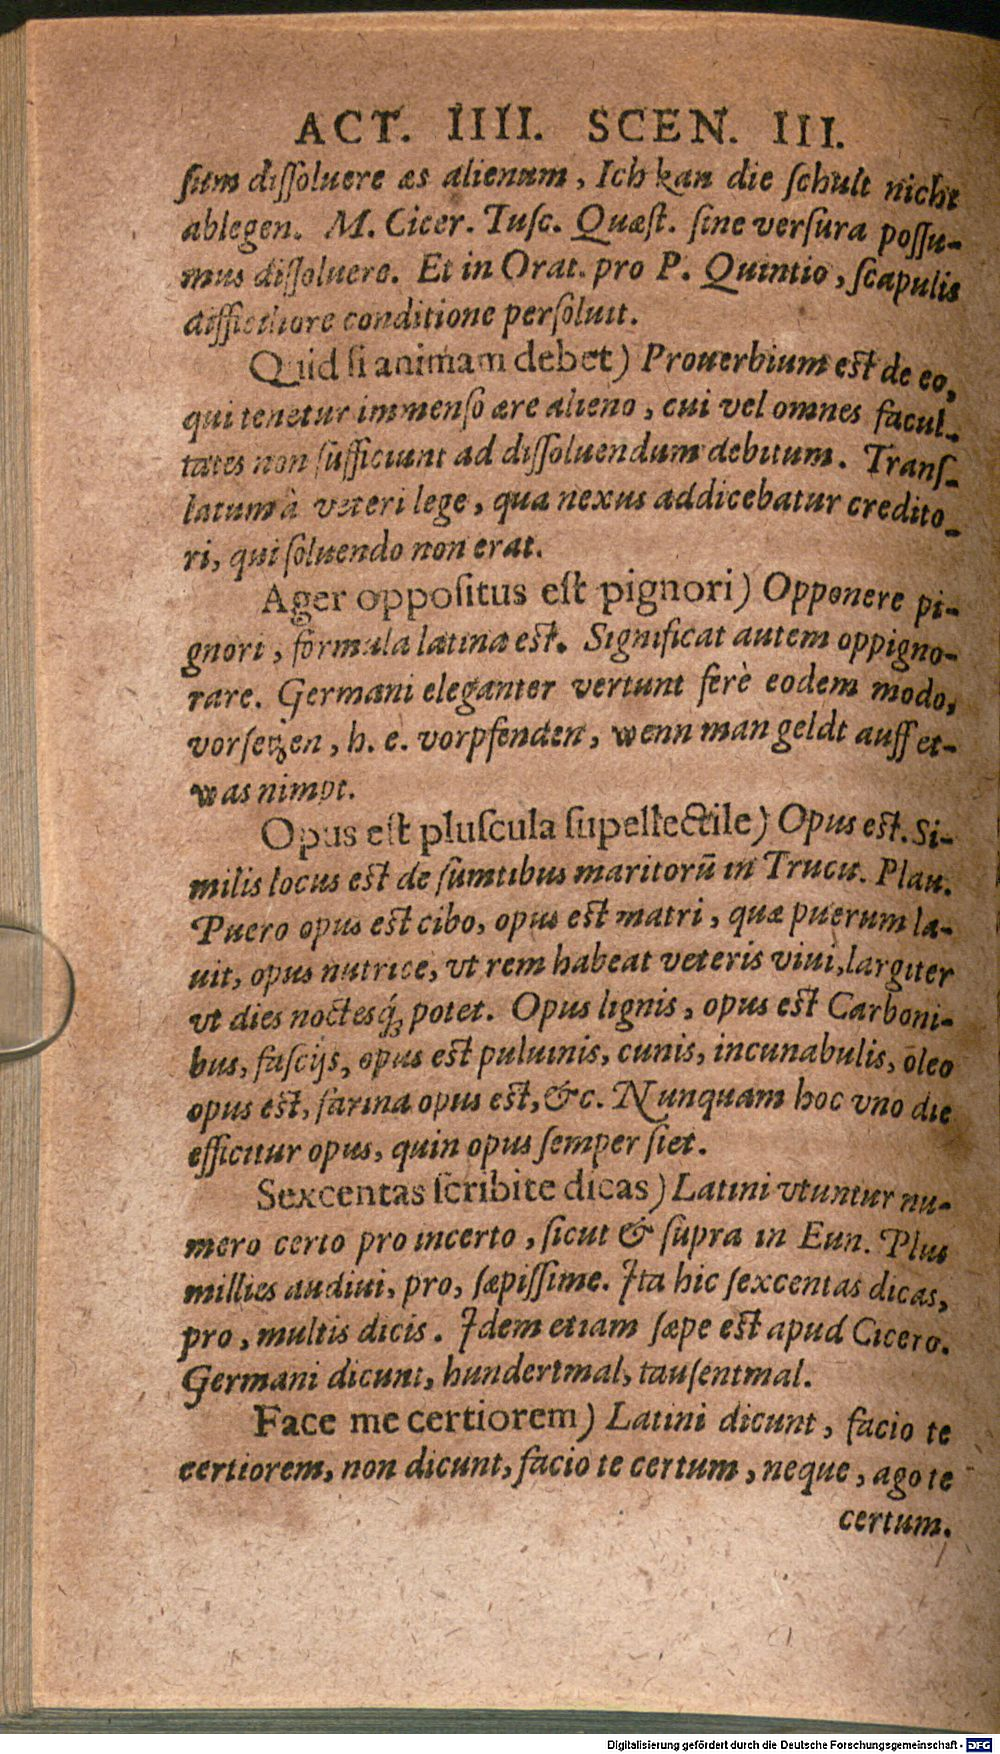 ACT. IIII. SCEN. III.
ſum diſſoluere æs alienum, Ich kan die ſchult nicht
ablegen. M. Cicer. Tuſc. Quæſt. ſine verſura poſſu-
mus diſſoluere. Et in Orat. pro P. Quintio, ſcapulis
difficiliore conditione perſoluit.
Quid ſi animam debet) Prouerbium eſt de eo,
qui tenetur immenſo ære alieno, cui vel omnes facul-
tates non ſufficiunt ad diſſoluendum debitum. Tranſ-
latum à veteri lege, qua nexus addicebatur credito-
ri, qui ſoluendo non erat.
Ager oppoſitus eſt pignori) Opponere pi-
gnori, formula latina eſt. Significat autem oppigno-
rare. Germani eleganter vertunt ferè eodem modo,
vorſetzen, h. e. vorpfenden, wenn man geldt auff et-
was nimpt.
Opus eſt pluſcula ſupellectile) Opus eſt. Si-
milis locus eſt de ſumtibus maritorū in Trucu. Plau.
Puero opus eſt cibo, opus eſt matri, quæ puerum la-
uit, opus nutrice, vt rem habeat veteris viui, largiter
vt dies noctesq́; potet. Opus lignis, opus eſt Carboni-
bus, faſcijs, opus eſt puluinis, cunis, incunabulis, oleo
opus eſt, farina opus eſt, &c. Nunquam hoc vno die
efficitur opus, quin opus ſemper ſiet.
Sexcentas ſcribite dicas) Latini vtuntur nu-
mero certo pro incerto, ſicut & ſupra in Eun. Plus
millies audiui, pro, ſæpiſſime. Ita hic ſexcentas dicas,
pro, multis dicis. Idem etiam ſæpe eſt apud Cicero.
Germani dicunt, hundertmal, tauſentmal.
Face me certiorem) Latini dicunt, facio te
certiorem, non dicunt, facio te certum, neque, ago te
certum.
Digitalisierung gefördert durch die Deutsche Forschungsgemeinschaft - DFG